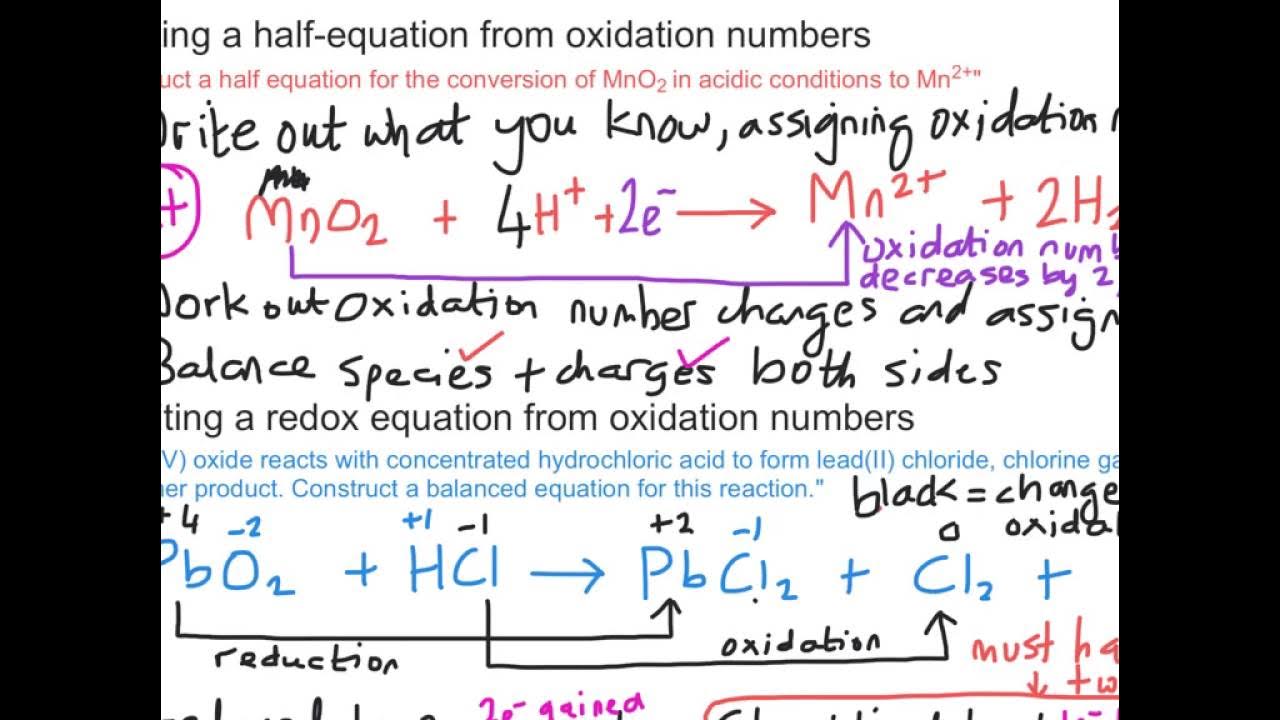 ing a half-equation from oxidation numbers
uct a half equation for the conversion of MnO₂ in acidic conditions to Mn²⁺"
rite out what you know, assigning oxidation
+ MnO₂ + 4H⁺ + 2e⁻ → Mn²⁺ + 2H₂
oxidation numb
decreases by 2,
ork out oxidation number changes and assign
Balance species ✓ + charges ✓ both sides
ting a redox equation from oxidation numbers
V) oxide reacts with concentrated hydrochloric acid to form lead(II) chloride, chlorine ga
er product. Construct a balanced equation for this reaction."
black = change
+4 -2 +1 -1 +2 -1 0 oxidat
PbO₂ + HCl → PbCl₂ + Cl₂ +
reduction
oxidation
must ha
↓ + w
2e⁻ gained